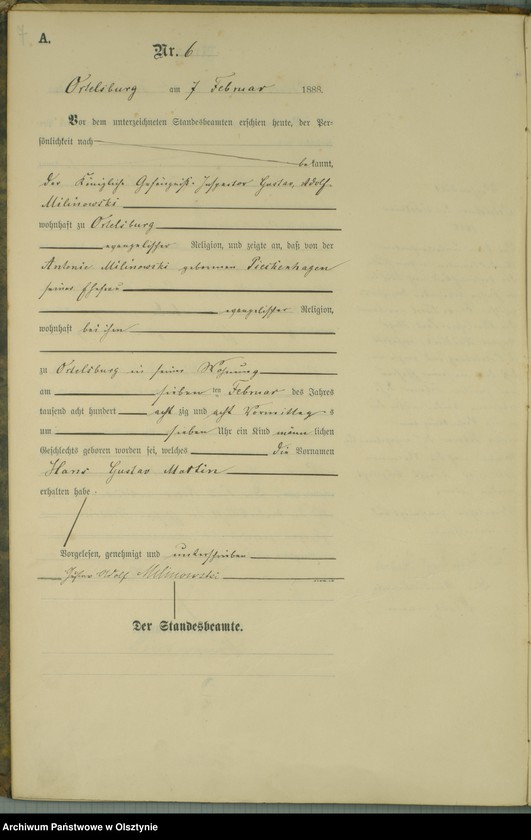 A.
Nr. 6
Ortelsburg am 7 Februar 1888.
Vor dem unterzeichneten Standesbeamten erschien heute, der Per-
sönlichkeit nach
bekannt,
der Königliche Gefängniß-Inspector Gustav Adolf
Milinowski
wohnhaft zu Ortelsburg
evangelischer Religion, und zeigte an, daß von der
Antonie Milinowski geborenen
seiner Ehefrau
evangelischer Religion,
wohnhaft bei ihm
zu Ortelsburg in seiner Wohnung
am sieben ten Februar des Jahres
tausend acht hundert acht zig und acht Vormittags
um sieben Uhr ein Kind männ lichen
Geschlechts geboren worden sei, welches die Vornamen
Hans Gustav Martin
erhalten habe.
Vorgelesen, genehmigt und unterschrieben
Gustav Adolf Milinowski
Der Standesbeamte.
Archiwum Państwowe w Olsztynie